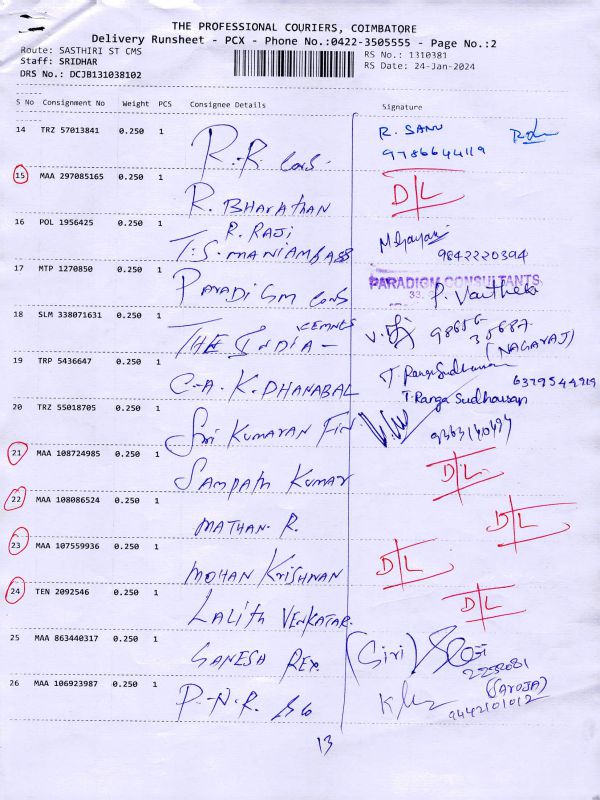 THE PROFESSIONAL COURIERS, COIMBATORE
Delivery Runsheet - PCX - Phone No.:0422-3505555 - Page No.:2
Route: SASTHIRI ST CMS RS No.: 1310381
Staff: SRIDHAR RS Date: 24-Jan-2024
DRS No.: DCJB131038102
S No Consignment No Weight PCS Consignee Details Signature
14 TRZ 57013841 0.250 1 R.R Cons. R. SANU
9786644119
15 MAA 297085165 0.250 1 R. BHARATHAN D/L
16 POL 1956425 0.250 1 R. RAJI
T.S. MANIAMBASS 9842220394
17 MTP 1270850 0.250 1 PARADIGM Cons PARADIGM CONSULTANTS
18 SLM 338071631 0.250 1 THE INDIA - CEMNTS 98656
35687
(NAGARAJ)
19 TRP 5436647 0.250 1 C.A. K. DHANABAL T. Ranga Sudharsan
6379544919
T. Ranga Sudharsan
20 TRZ 55018705 0.250 1 Sri KUMARAN FIN
21 MAA 108724985 0.250 1 SAMPATH KUMAR D/L
22 MAA 108086524 0.250 1 MATHAN. R. D/L
23 MAA 107559936 0.250 1 MOHAN KRISHNAN D/L
24 TEN 2092546 0.250 1 LALITH VENKATAR. D/L
25 MAA 863440317 0.250 1 GANESH REX (Giri)
26 MAA 106923987 0.250 1 P.N.R. &Co (SAROJA)
9442101012
13